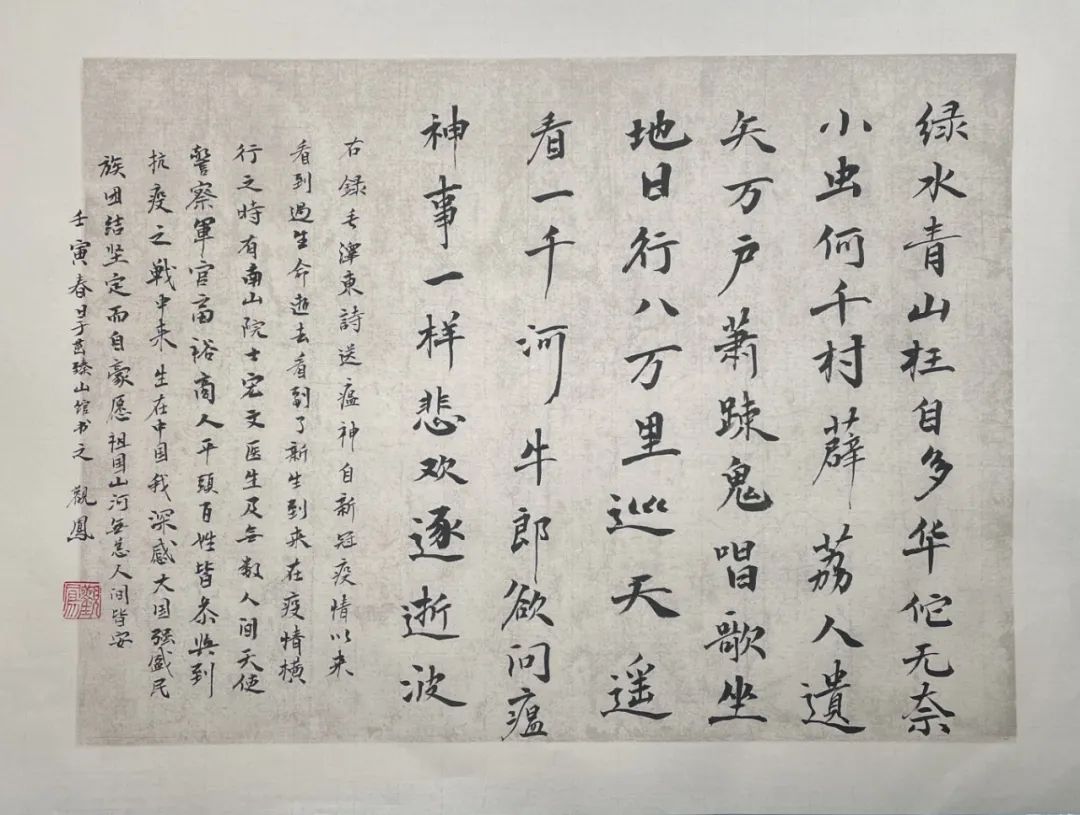 绿水青山枉自多华佗无奈
小虫何千村薜荔人遺
矢万户萧踈鬼唱歌坐
地日行八万里巡天遥
看一千河牛郎欲问瘟
神事一样悲欢逐逝波
右録毛澤東詩送瘟神自新冠疫情以来
看到過生命逝去看到了新生到来在疫情横
行之時有南山院士宏文医生及無数人间天使
警察軍官富裕商人平頭百姓皆参與到
抗疫之戦中来生在中国我深感大国强盛民
族团结坚定而自豪愿祖国山河無恙人间皆安
壬寅春日于 臻山馆书之 觀鳳